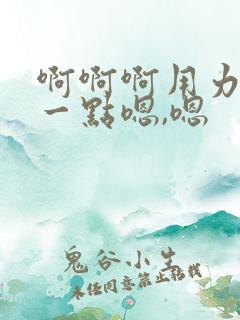 啊啊啊用力
一點嗯,嗯
鬼谷小生
未经同意禁止转载